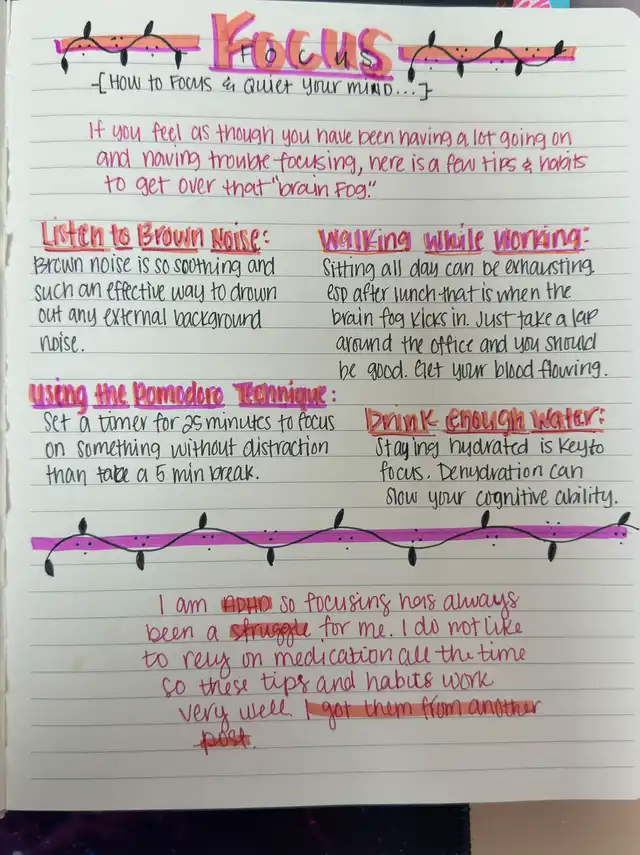 FOCUS
FOCUS
-[HOW TO FOCUS & QUIET YOUR MIND...]
If you feel as though you have been having a lot going on
and having trouble focusing, here is a few tips & habits
to get over that "brain fog."
Listen to Brown Noise:
Brown noise is so soothing and
such an effective way to drown
out any external background
noise.
Walking while working:
Sitting all day can be exhausting
esp after lunch-that is when the
brain fog kicks in. Just take a lap
around the office and you should
be good. Get your blood flowing.
Using the Pomodoro Technique:
Set a timer for 25 minutes to focus
on something without distraction
than take a 5 min break.
Drink enough water:
Staying hydrated is key to
focus. Dehydration can
slow your cognitive ability.
I am ADHD so focusing has always
been a struggle for me. I do not like
to rely on medication all the time
so these tips and habits work
very well. I got them from another
post.